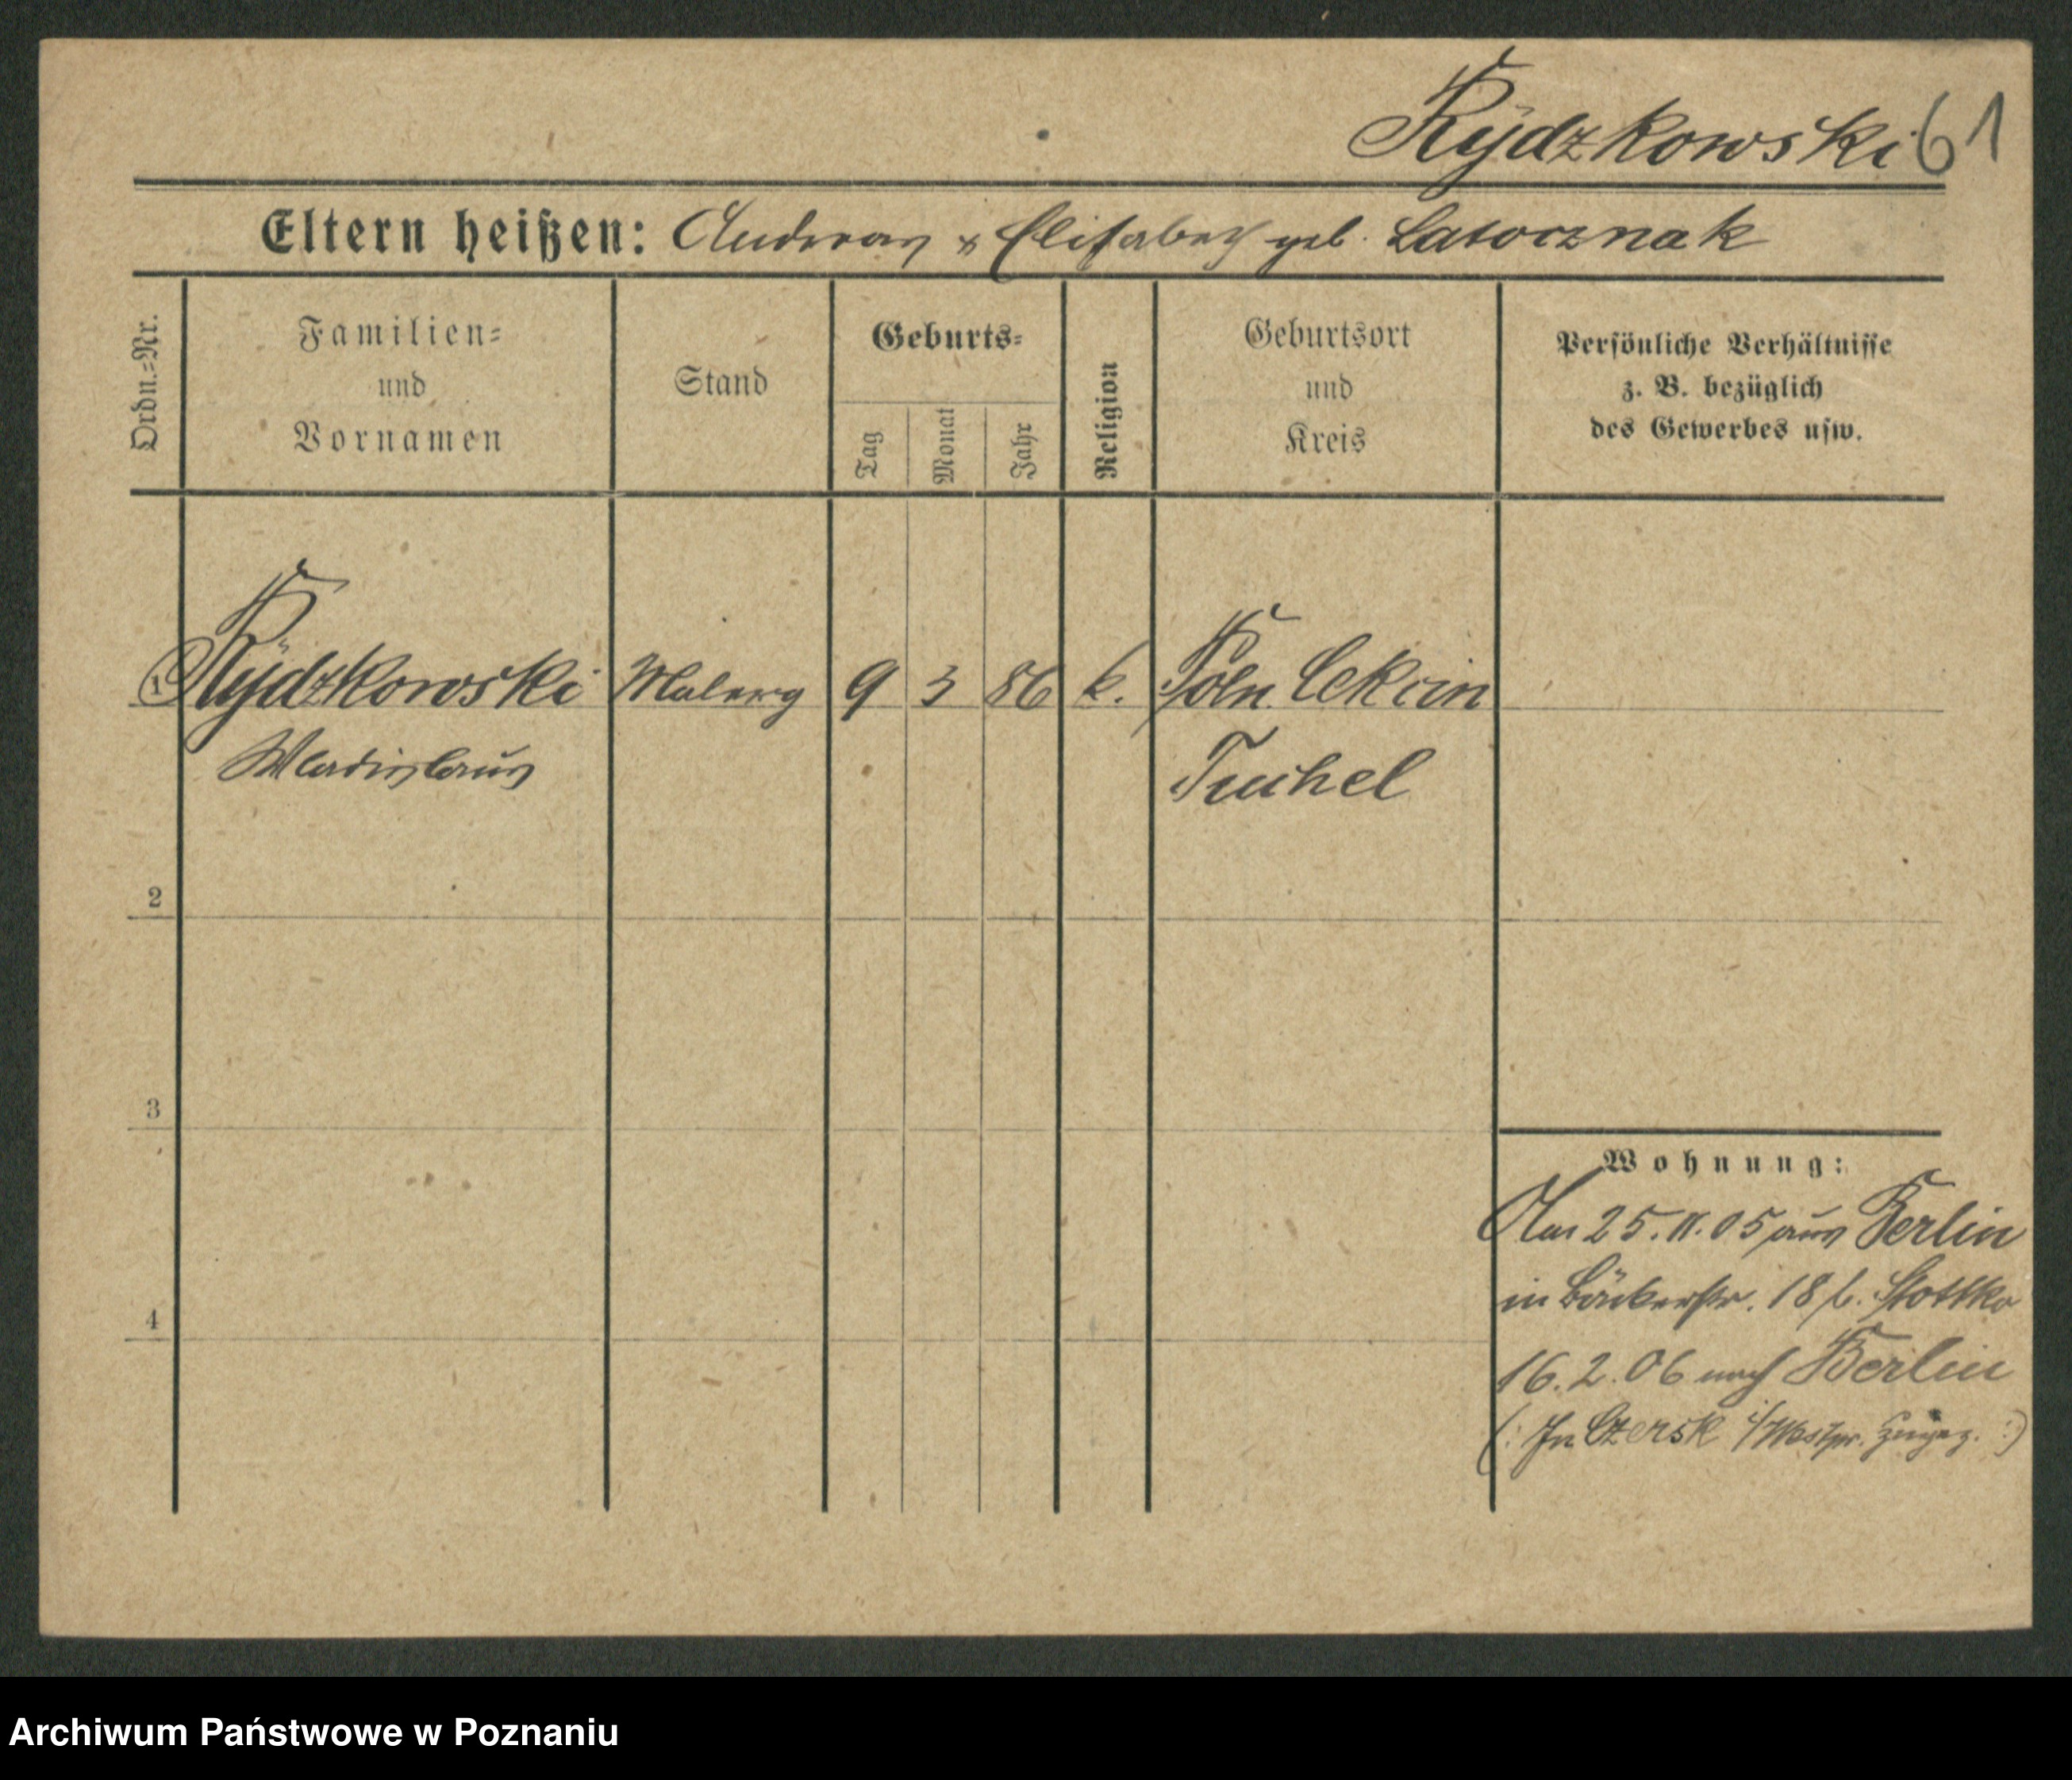 Rÿdzkowski 61
Eltern heißen: Andreas & Elisabeth geb. Latocznak
Ordn.=Nr.
Familien=
und
Vornamen
Stand
Geburts=
Tag
Monat
Jahr
Religion
Geburtsort
und
Kreis
Persönliche Verhältnisse
z. B. bezüglich
des Gewerbes usw.
1 Rÿdzkowski Malerg 9 3 86 k. Poln. Cekcin
Wladislaus Tuchel
2
3
4
Wohnung:
Am 25.11.05 aus Berlin
in Bäckerstr. 18 b.
16.2.06 nach Berlin
(: In Czersk i/Westpr. :)
Archiwum Państwowe w Poznaniu